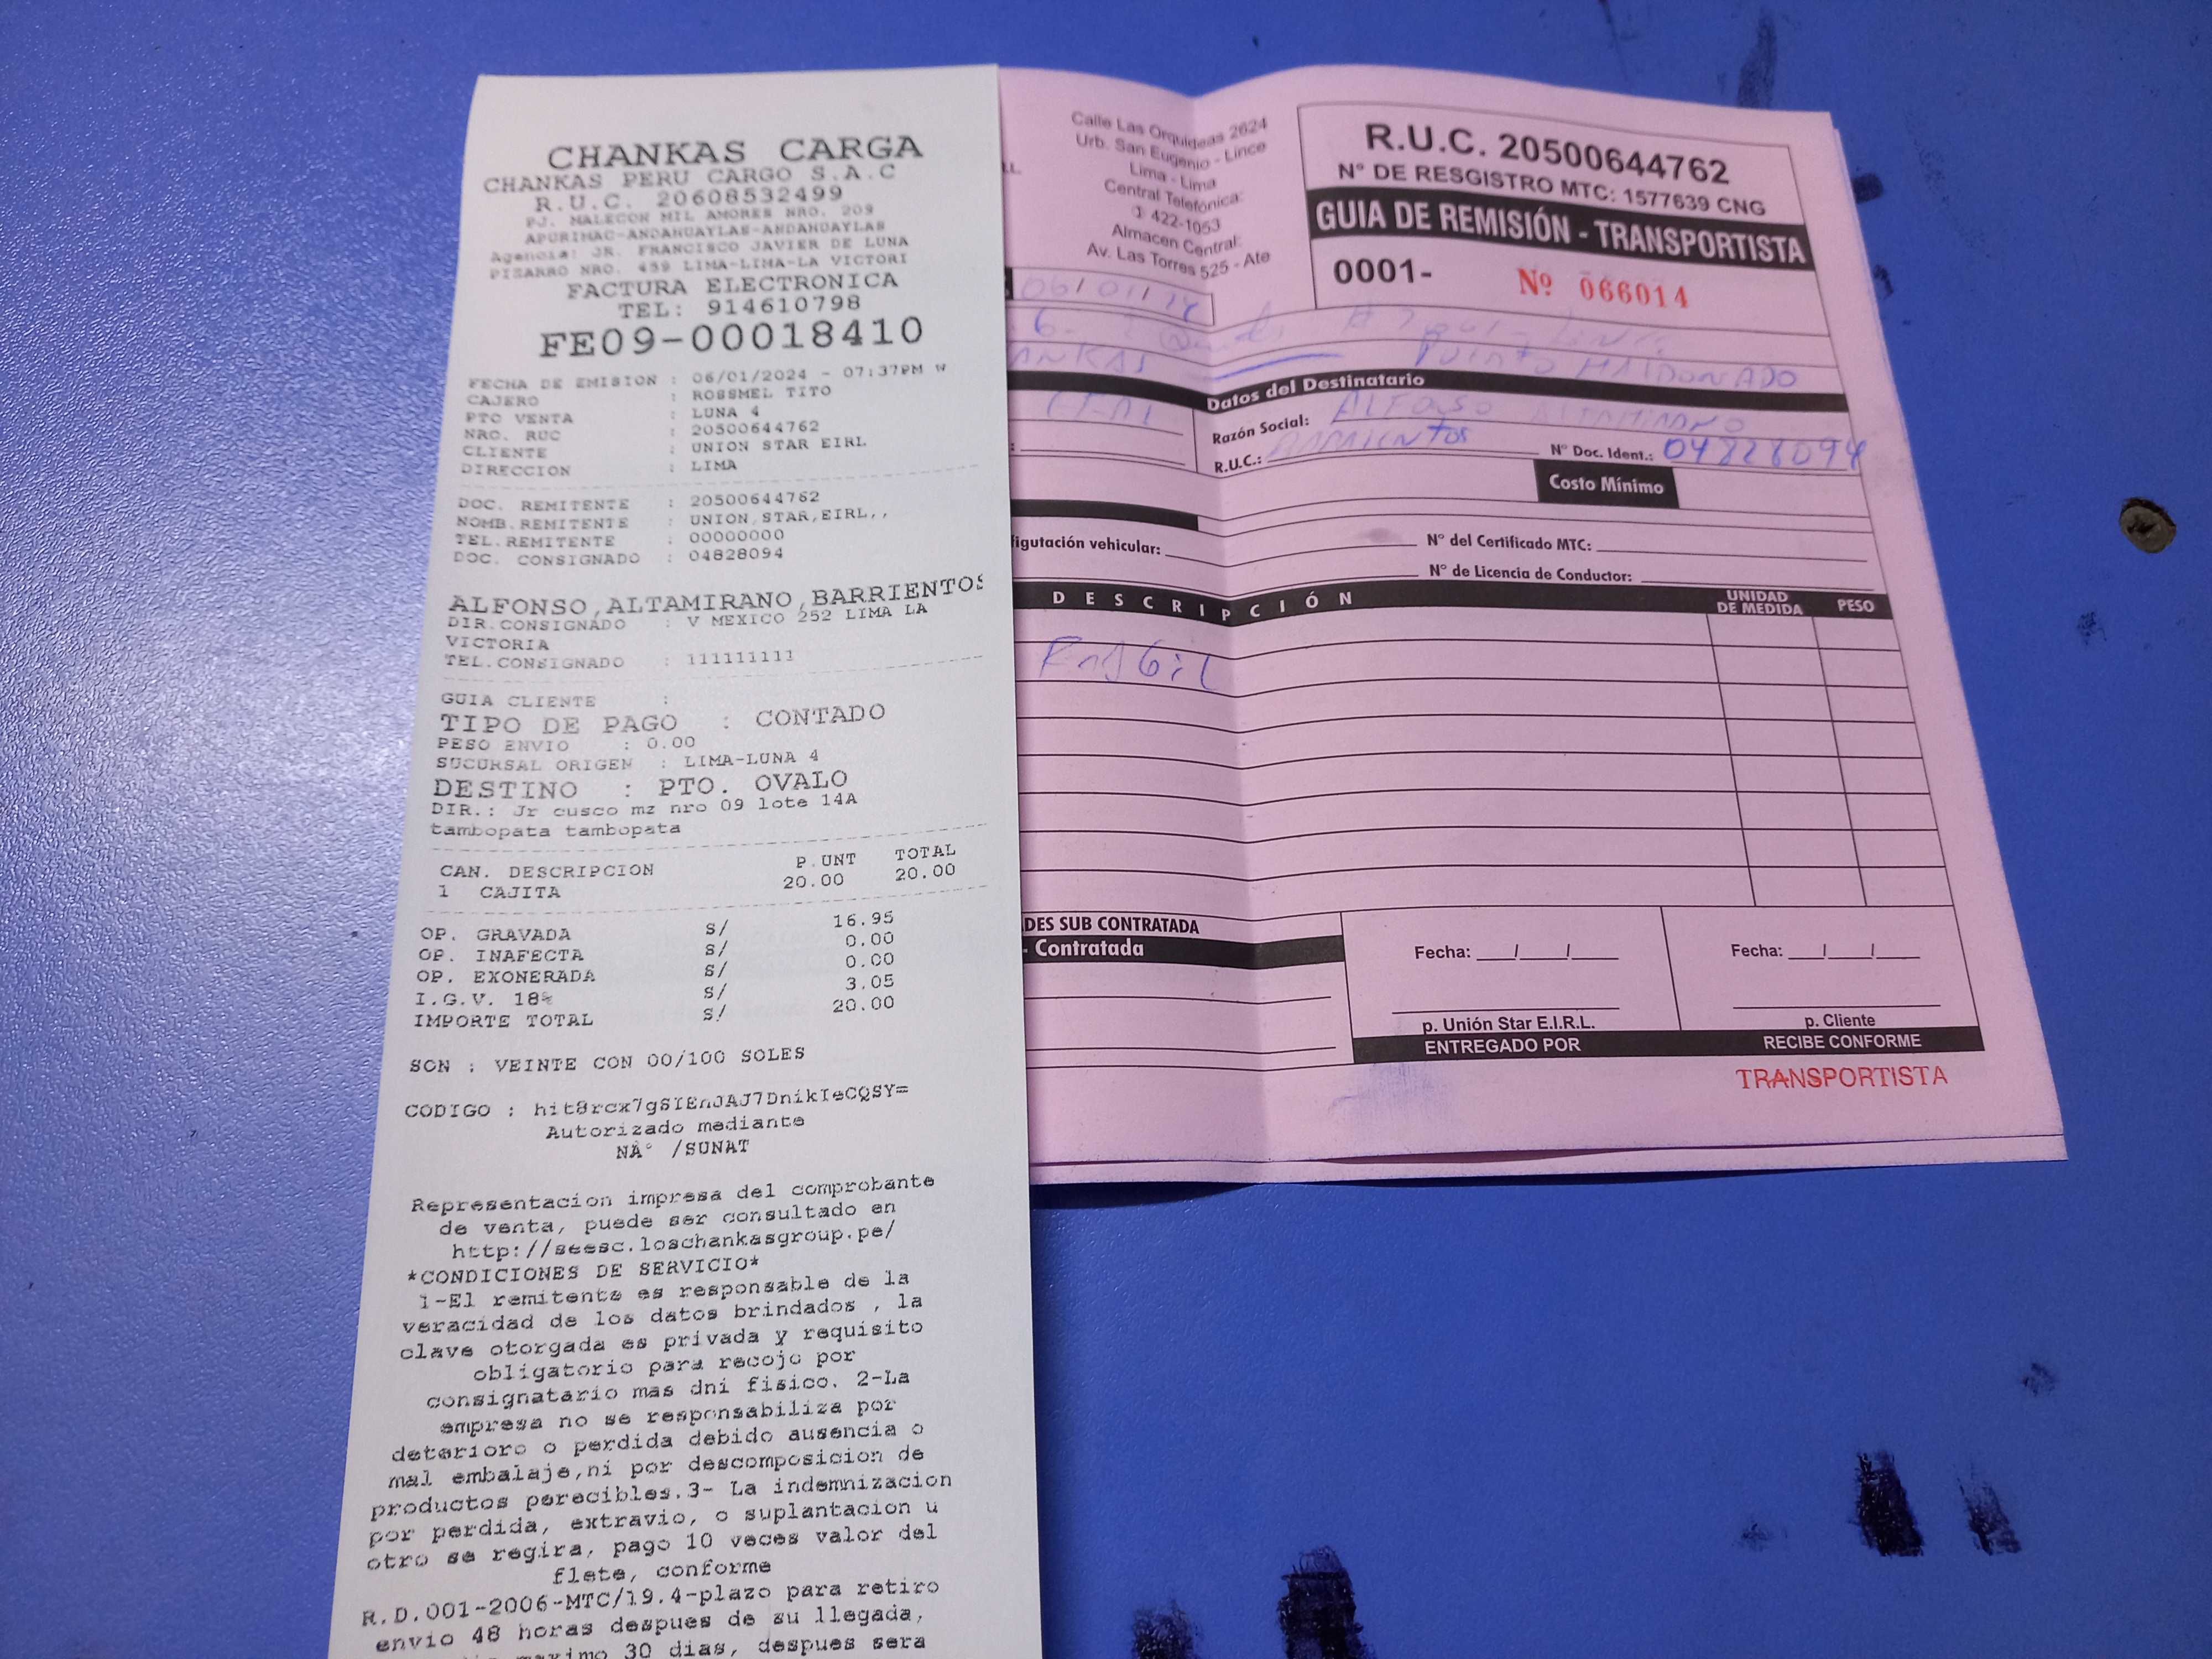 CHANKAS CARGA
CHANKAS PERU CARGO S.A.C
R.U.C. 20608532499
PJ. MALECON MIL AMORES NRO. 209
APURIMAC-ANDAHUAYLAS-ANDAHUAYLAS
Agencia: JR. FRANCISCO JAVIER DE LUNA
PIZARRO NRO. 459 LIMA-LIMA-LA VICTORI
FACTURA ELECTRONICA
TEL: 914610798
FE09-00018410
FECHA DE EMISION : 06/01/2024 - 07:37PM W
CAJERO : ROSSMEL TITO
PTO VENTA : LUNA 4
NRO. RUC : 20500644762
CLIENTE : UNION STAR EIRL
DIRECCION : LIMA
DOC. REMITENTE : 20500644762
NOMB.REMITENTE : UNION,STAR,EIRL,,
TEL.REMITENTE : 00000000
DOC. CONSIGNADO : 04828094
ALFONSO,ALTAMIRANO,BARRIENTOS
DIR.CONSIGNADO : V MEXICO 252 LIMA LA
VICTORIA
TEL.CONSIGNADO : 111111111
GUIA CLIENTE :
TIPO DE PAGO : CONTADO
PESO ENVIO : 0.00
SUCURSAL ORIGEN : LIMA-LUNA 4
DESTINO : PTO. OVALO
DIR.: Jr cusco mz nro 09 lote 14A
tambopata tambopata
CAN. DESCRIPCION P.UNT TOTAL
1 CAJITA 20.00 20.00
OP. GRAVADA S/ 16.95
OP. INAFECTA S/ 0.00
OP. EXONERADA S/ 0.00
I.G.V. 18% S/ 3.05
IMPORTE TOTAL S/ 20.00
SON : VEINTE CON 00/100 SOLES
CODIGO : hit8rcx7gSIEnJAJ7DnikIeCQSY=
Autorizado mediante
NÂ° /SUNAT
Representacion impresa del comprobante
de venta, puede ser consultado en
http://seesc.loschankasgroup.pe/
*CONDICIONES DE SERVICIO*
1-El remitente es responsable de la
veracidad de los datos brindados , la
clave otorgada es privada y requisito
obligatorio para recojo por
consignatario mas dni fisico. 2-La
empresa no se responsabiliza por
deterioro o perdida debido ausencia o
mal embalaje,ni por descomposicion de
productos perecibles.3- La indemnizacion
por perdida, extravio, o suplantacion u
otro se regira, pago 10 veces valor del
flete, conforme
R.D.001-2006-MTC/19.4-plazo para retiro
envio 48 horas despues de su llegada,
maximo 30 dias, despues sera
Calle Las Orquideas 2624
Urb. San Eugenio - Lince
Lima - Lima
Central Telefónica:
422-1053
Almacen Central:
Av. Las Torres 525 - Ate
R.U.C. 20500644762
N° DE RESGISTRO MTC: 1577639 CNG
GUIA DE REMISIÓN - TRANSPORTISTA
0001- Nº 066014
06/01/
ANKAS PUERTO MALDONADO
Datos del Destinatario
Razón Social: ALFONSO ALTAMIRANO
R.U.C.: N° Doc. Ident.: 04828094
Costo Mínimo
figutación vehicular: N° del Certificado MTC:
N° de Licencia de Conductor:
DESCRIPCIÓN UNIDAD DE MEDIDA PESO
DES SUB CONTRATADA
- Contratada
Fecha: __/__/__ Fecha: __/__/__
p. Unión Star E.I.R.L. p. Cliente
ENTREGADO POR RECIBE CONFORME
TRANSPORTISTA